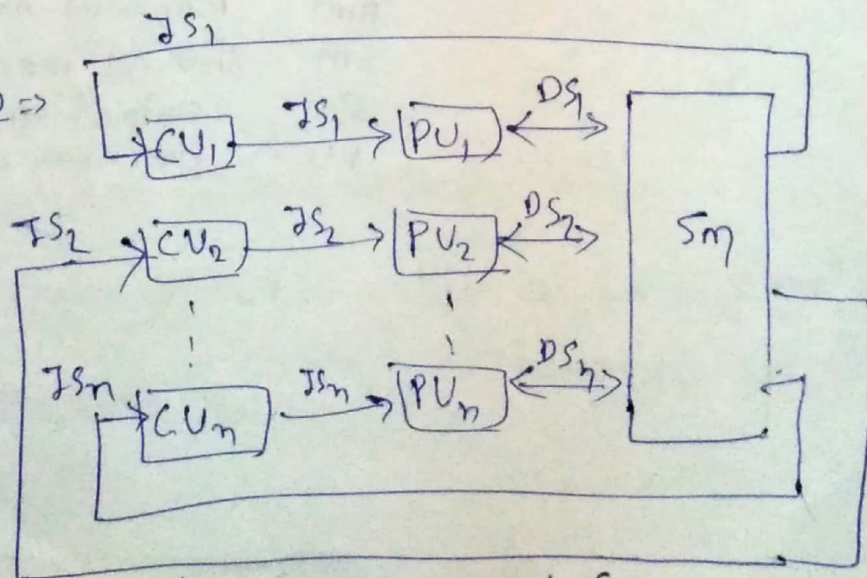 IS₁
⇒
CU₁ IS₁ PU₁ DS₁
IS₂ CU₂ IS₂ PU₂ DS₂ Sm
ISn CUn ISn PUn DSn